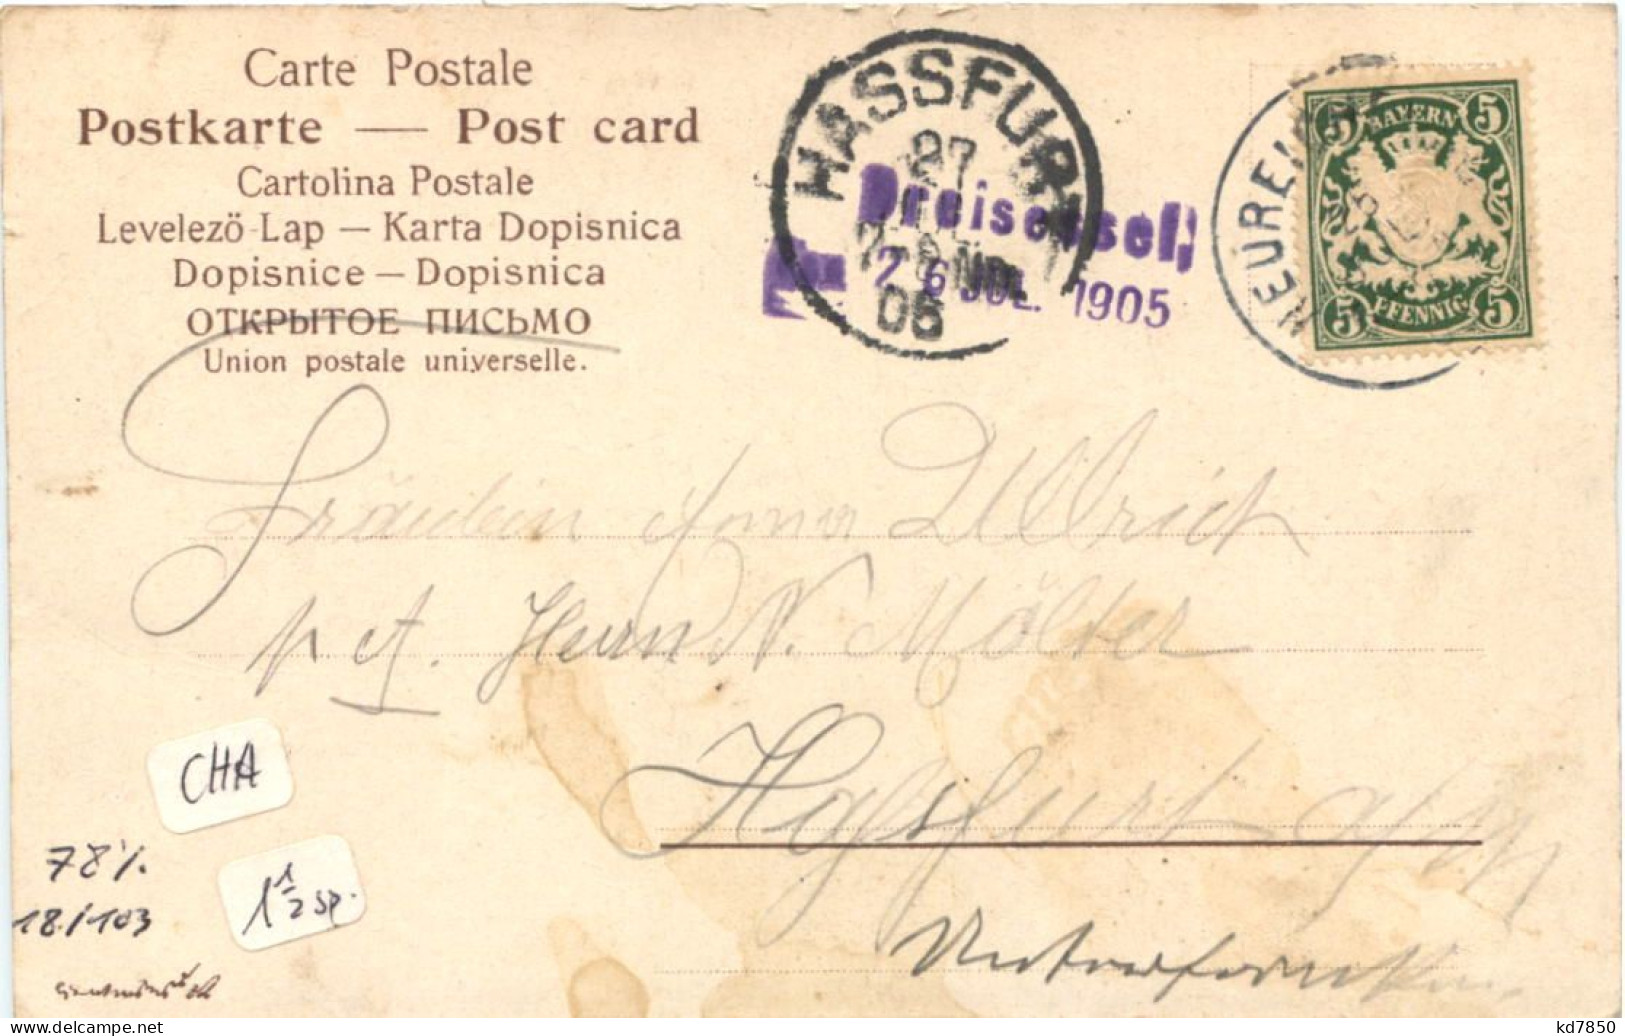 Carte Postale
Postkarte — Post card
Cartolina Postale
Levelező-Lap — Karta Dopisnica
Dopisnice — Dopisnica
ОТКРЫТОЕ ПИСЬМО
Union postale universelle.
HASSFURT
27
05
Dreisessel
26 JUL. 1905
NEUREI
5 BAYERN 5
5 PFENNIG 5
Fräulein Anna Ullrich
p. A. Herrn N. Mölter
Hassfurt a/M
Unterfranken
CHA
78%
18./103
1 1/2 sp.
kd7850